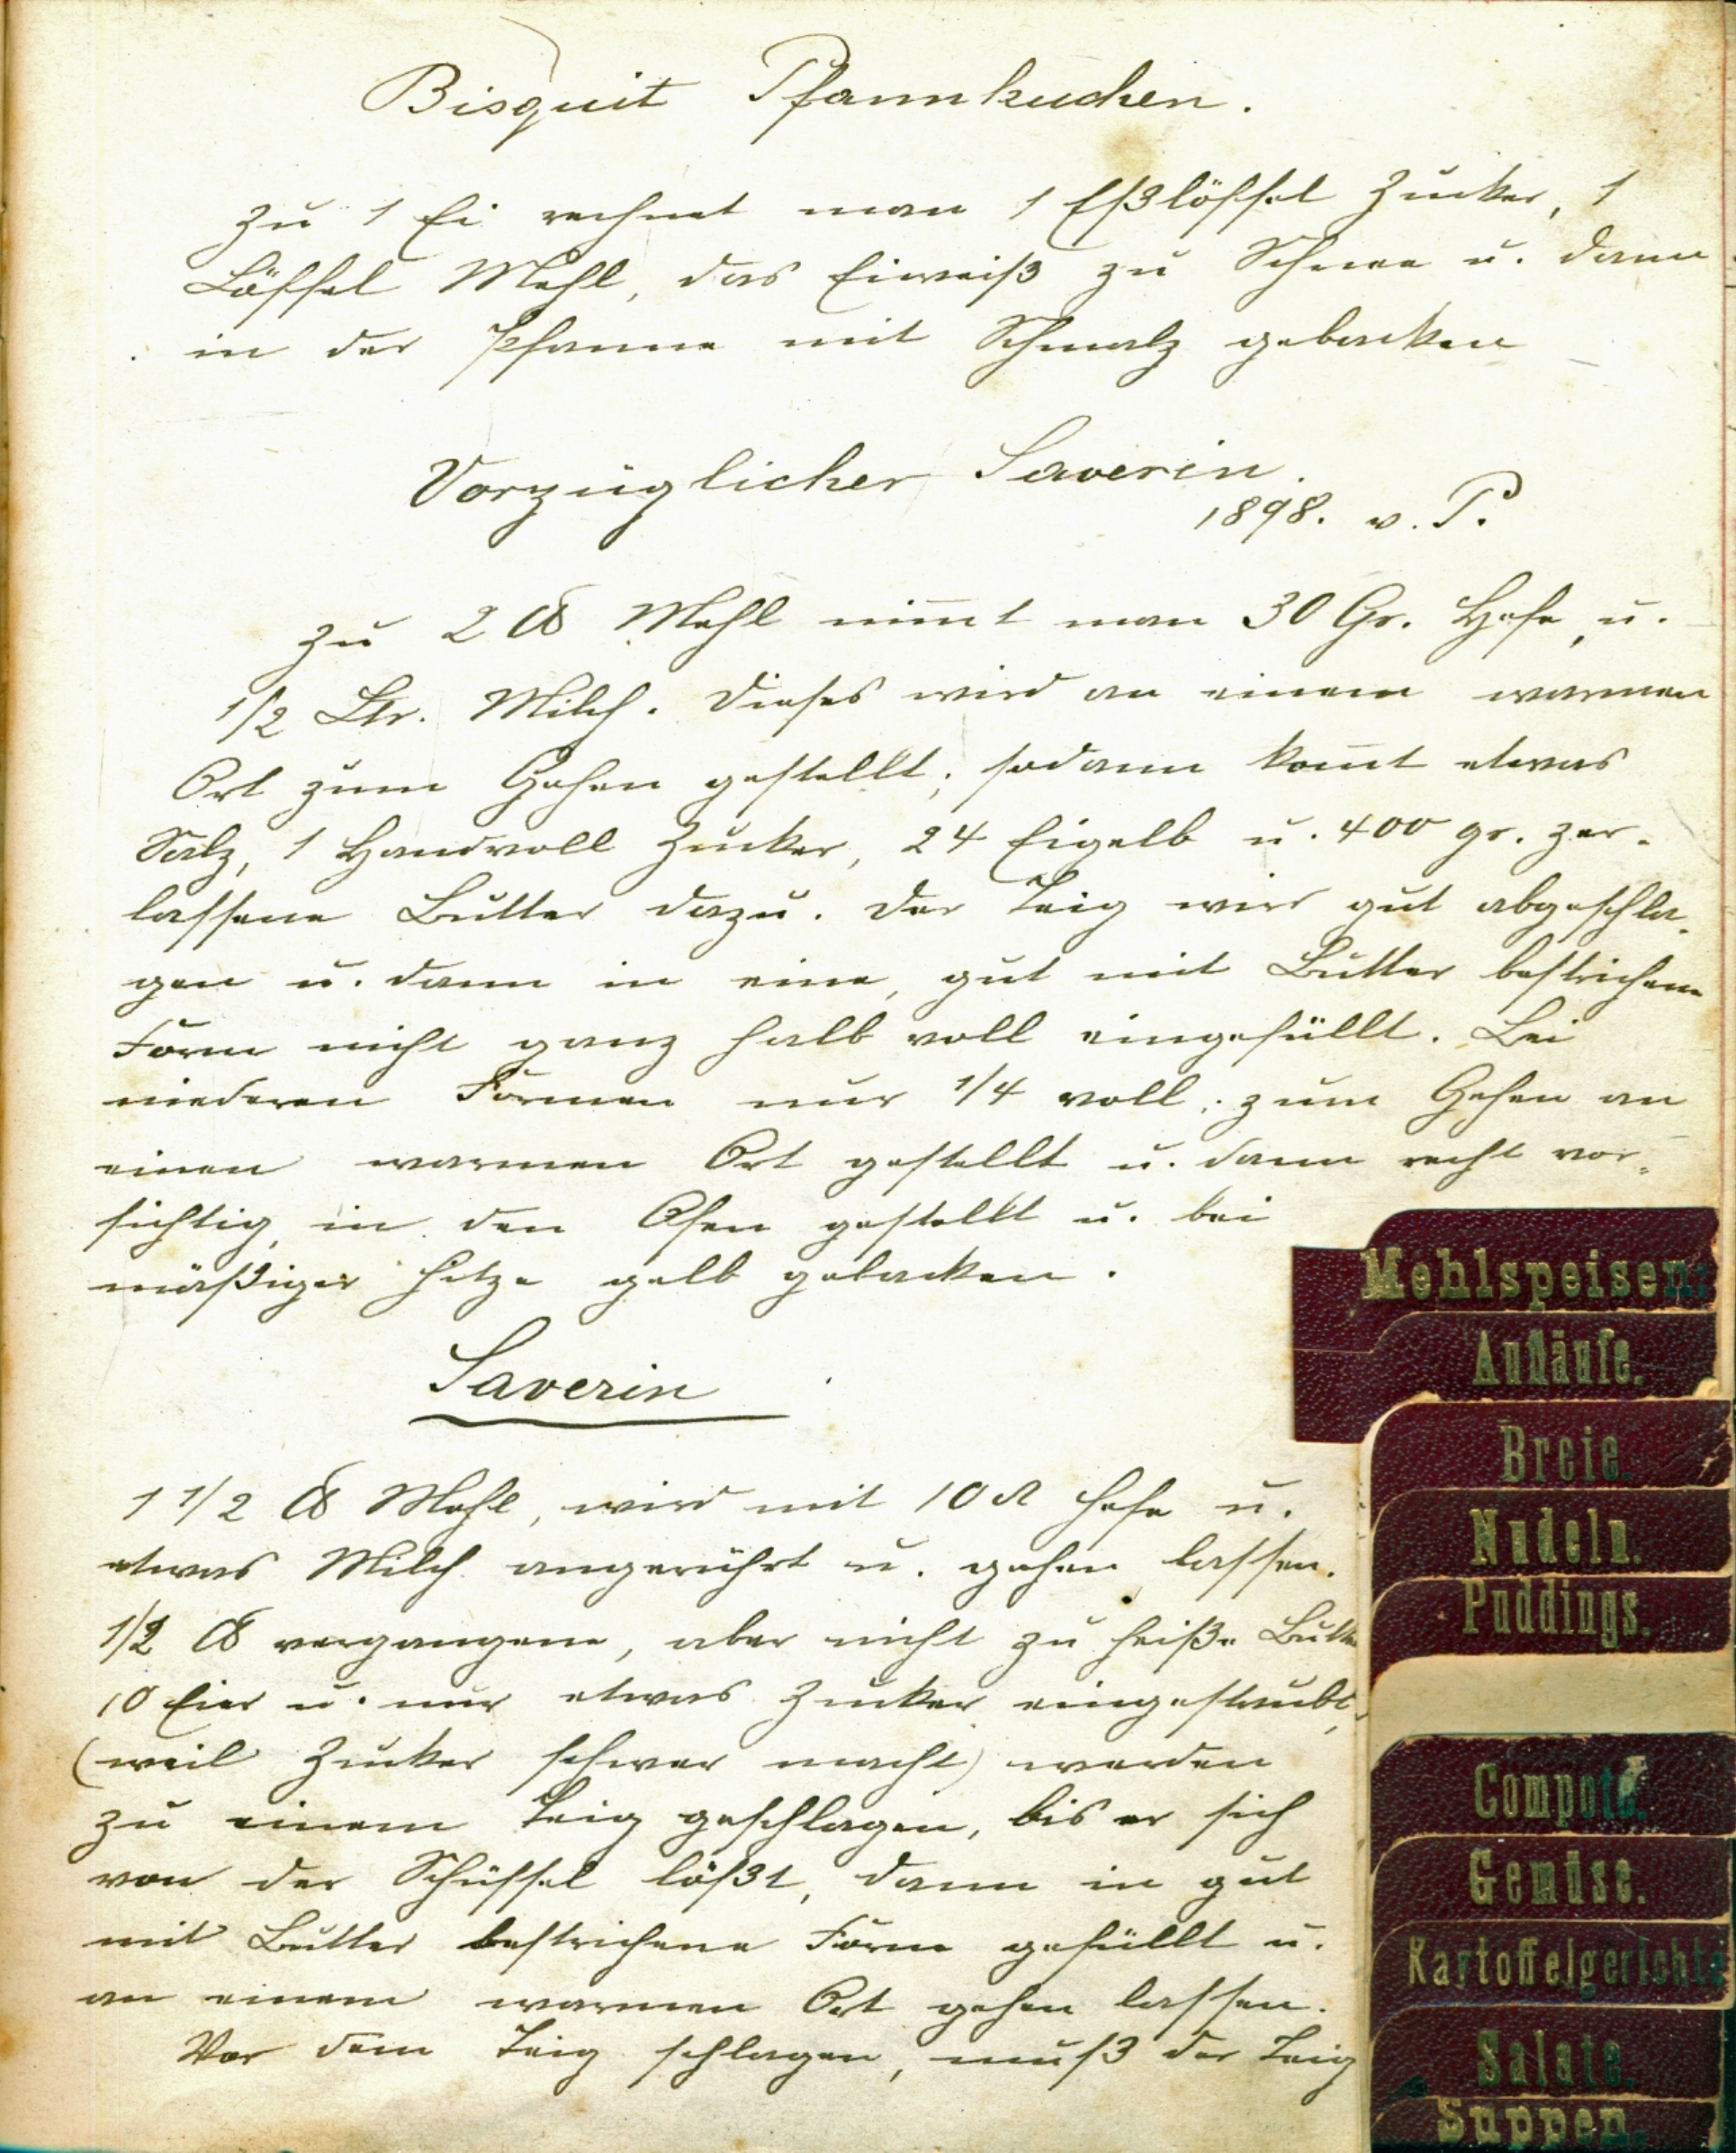 Bisquit Pfannkuchen.
Zu 1 Ei rechnet man 1 Eßlöffel Zucker, 1
Löffel Mehl, das Eiweiß zu Schnee u. dann
in der Pfanne mit Schmalz gebacken
Vorzüglicher Saverin.
1898. v. P.
Zu 2 ℔ Mehl nim̄t man 30 Gr. Hefe, u.
1/2 Ltr. Milch. Dieses wird an einem warmen
Ort zum Gehen gestellt; sodann kom̄t etwas
Salz, 1 Handvoll Zucker, 24 Eigelb u. 400 gr. zer-
lassene Butter dazu. Der Teig wird gut abgeschla-
gen u. dann in eine, gut mit Butter bestrichene
Form nicht ganz halb voll eingefüllt. Bei
niederen Formen nur 1/4 voll; zum Gehen an
einen warmen Ort gestellt u. dann recht vor-
sichtig in den Ofen gestellt u. bei
mäßiger Hitze gelb gebacken.
Saverin
1 1/2 ℔ Mehl, wird mit 10 ₰ Hefe u.
etwas Milch angerührt u. gehen lassen.
1/2 ℔ vergangene, aber nicht zu heiße Butter
10 Eier u. nur etwas Zucker eingestaubt,
(weil Zucker schwer macht) werden
zu einem Teig geschlagen, bis er sich
von der Schüssel lößt, dann in gut
mit Butter bestrichene Form gefüllt u.
an einem warmen Ort gehen lassen.
Vor dem Teig schlagen, muß der Teig
Mehlspeisen:
Aufläufe.
Breie.
Nudeln.
Puddings.
Compote.
Gemüse.
Kartoffelgerichte
Salate.
Suppen.